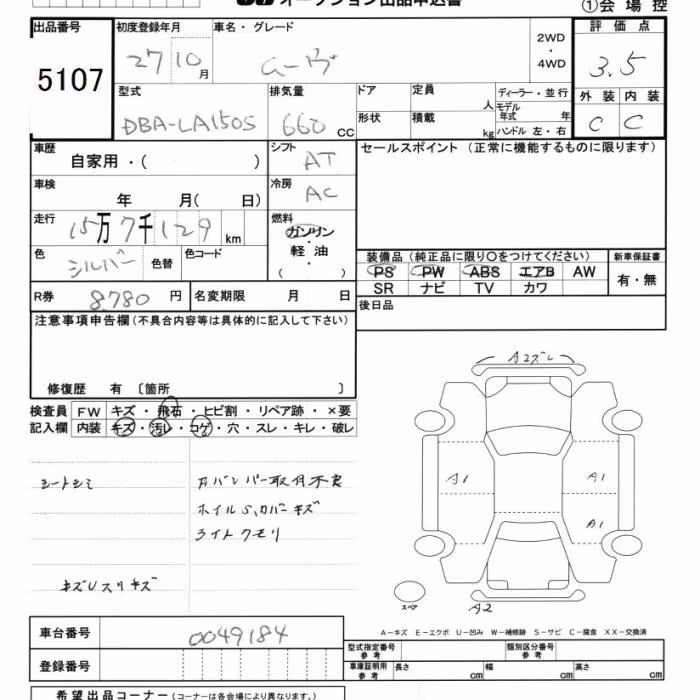 オークション出品申込書
①会場控
出品番号 初度登録年月 車名・グレード 評価点
5107 27 10月 ムーヴ 2WD・4WD 3.5
型式 排気量 ドア 定員 人 ディーラー・並行 外装 内装
DBA-LA150S 660 CC 形状 積載 kg モデル年式 年 ハンドル 左・右 C C
車歴 自家用・( ) シフト AT セールスポイント (正常に機能するものに限ります)
車検 年 月( 日) 冷房 AC
走行 15万7千129 km 燃料 ガソリン・軽油・( )
色 シルバー 色替 色コード
装備品 (純正品に限り○をつけてください) 新車保証書
PS PW ABS エアB AW 有・無
SR ナビ TV カワ
R券 8780 円 名変期限 月 日
後日品
注意事項申告欄 (不具合内容等は具体的に記入して下さい)
修復歴 有 〔箇所 〕
検査員 FW キズ・飛石・ヒビ割・リペア跡・×要
記入欄 内装 キズ・汚レ・コゲ・穴・スレ・キレ・破レ
シートシミ
Fバンパー取付不良
ホイルS,カバーキズ
ライトクモリ
キズUスリキズ
A2ズレ
A1 A1
A1
A2
スペア
A-キズ E-エクボ U-凹み W-補修跡 S-サビ C-腐食 XX-交換済
車台番号 0049184
型式指定番号 参考 類別区分番号 参考
登録番号
車庫証明用 参考 長さ cm 幅 cm 高さ cm
希望出品コーナー (コーナーは各会場により異なります。)